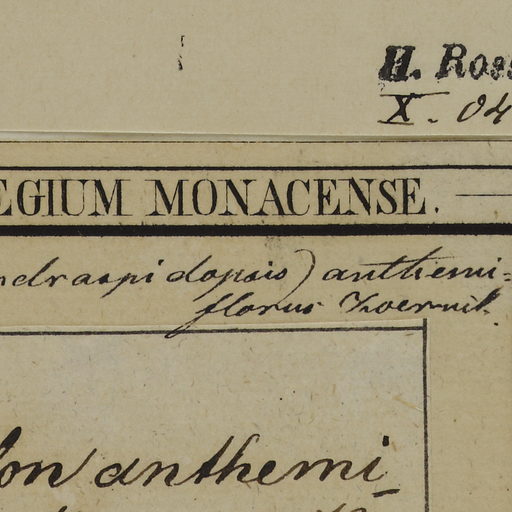 H. Ross
X. 04
EGIUM MONACENSE.
ndraspidopsis) anthemi=
florus Koernik.
lon anthemi_